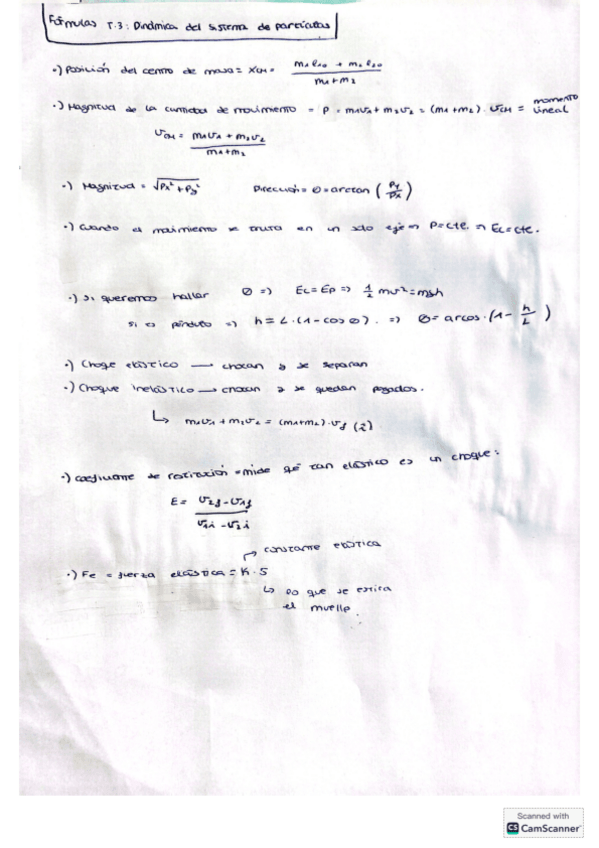 Fórmulas T.3: Dinámica del sistema de partículas
•) Posición del centro de masa = XCM = m1 l10 + m2 l20 / m1+m2
•) Magnitud de la cantidad de movimiento = P = m1v1 + m2v2 = (m1+m2) · vCM = momento lineal
vCM = m1v1 + m2v2 / m1+m2
•) Magnitud = √Px² + Py² Dirección = θ = arctan (Py/Px)
•) Cuando el movimiento se en un solo eje => P=cte. => Ec=cte.
•) Si queremos hallar θ => Ec = Ep => 1/2 mv² = mgh
si es péndulo => h = L·(1-cos θ). => θ = arcos·(1 - h/L)
•) Choque elástico → chocan y se separan
•) Choque inelástico → chocan y se quedan pegados.
↳ m1v1 + m2v2 = (m1+m2)·vf (î)
•) coeficiente de restitución = mide qué tan elástico es un choque:
E = v2f - v1f / v1i - v2i
→ constante elástica
•) Fe = fuerza elástica = K·S
↳ lo que se estira
el muelle.
Scanned with
CS CamScanner